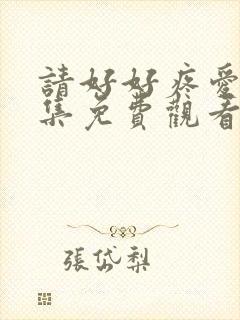 請好好疼愛
集免費觀看
張岱梨